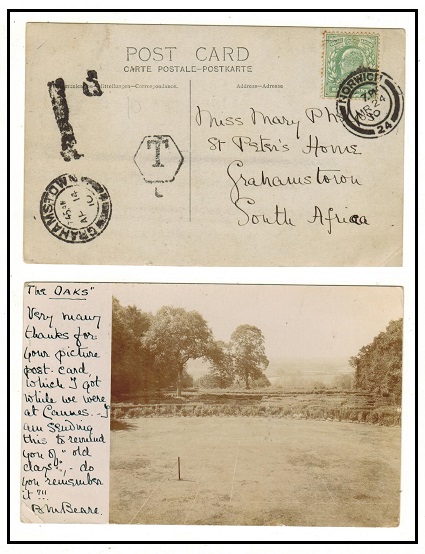 POST CARD
CARTE POSTALE-POSTKARTE
Address-Adresse
1d
T
L
NORWICH
MR 24
24
GRAHAMSTOWN
AP 14
Miss Mary
St Peter's Home
Grahamstown
South Africa
"The OAKS"
Very many
thanks for
your picture
post-card,
which I got
while we were
at Cannes. - I
am sending
this to remind
you of "old
days", - do
you remember
it?!!
Beare.